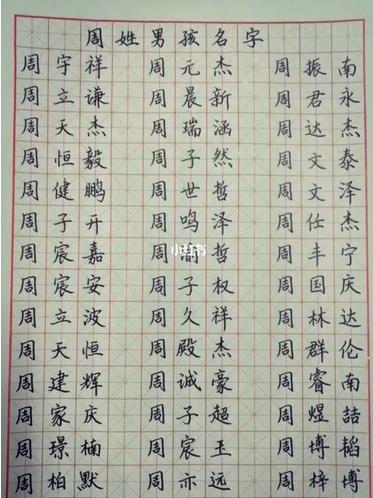 周姓男孩名字
周宇祥 周元杰 周振南
周立谦 周晨新 周君永
周天杰 周瑞涵 周达杰
周恒毅 周子然 周文泰
周健鹏 周世哲 周文泽
周子开 周鸣泽 周任杰
周宸嘉 周 哲 周丰宁
周宸安 周子权 周国庆
周立波 周久祥 周林达
周天恒 周殿杰 周群伦
周建辉 周诚豪 周睿南
周家庆 周子超 周煜喆
周璟楠 周宸玉 周博韬
周柏默 周亦远 周梓博
小红书